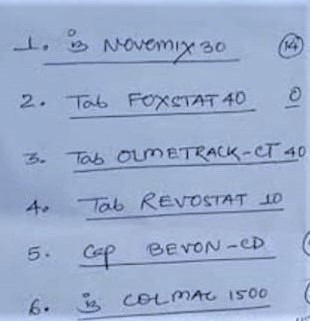 1. inj NOVOMIX 30 (14)
2. Tab FOXSTAT 40 0
3. Tab OLMETRACK-CT 40
4. Tab REVOSTAT 10
5. Cap BEVON-CD
6. inj COLMAC 1500